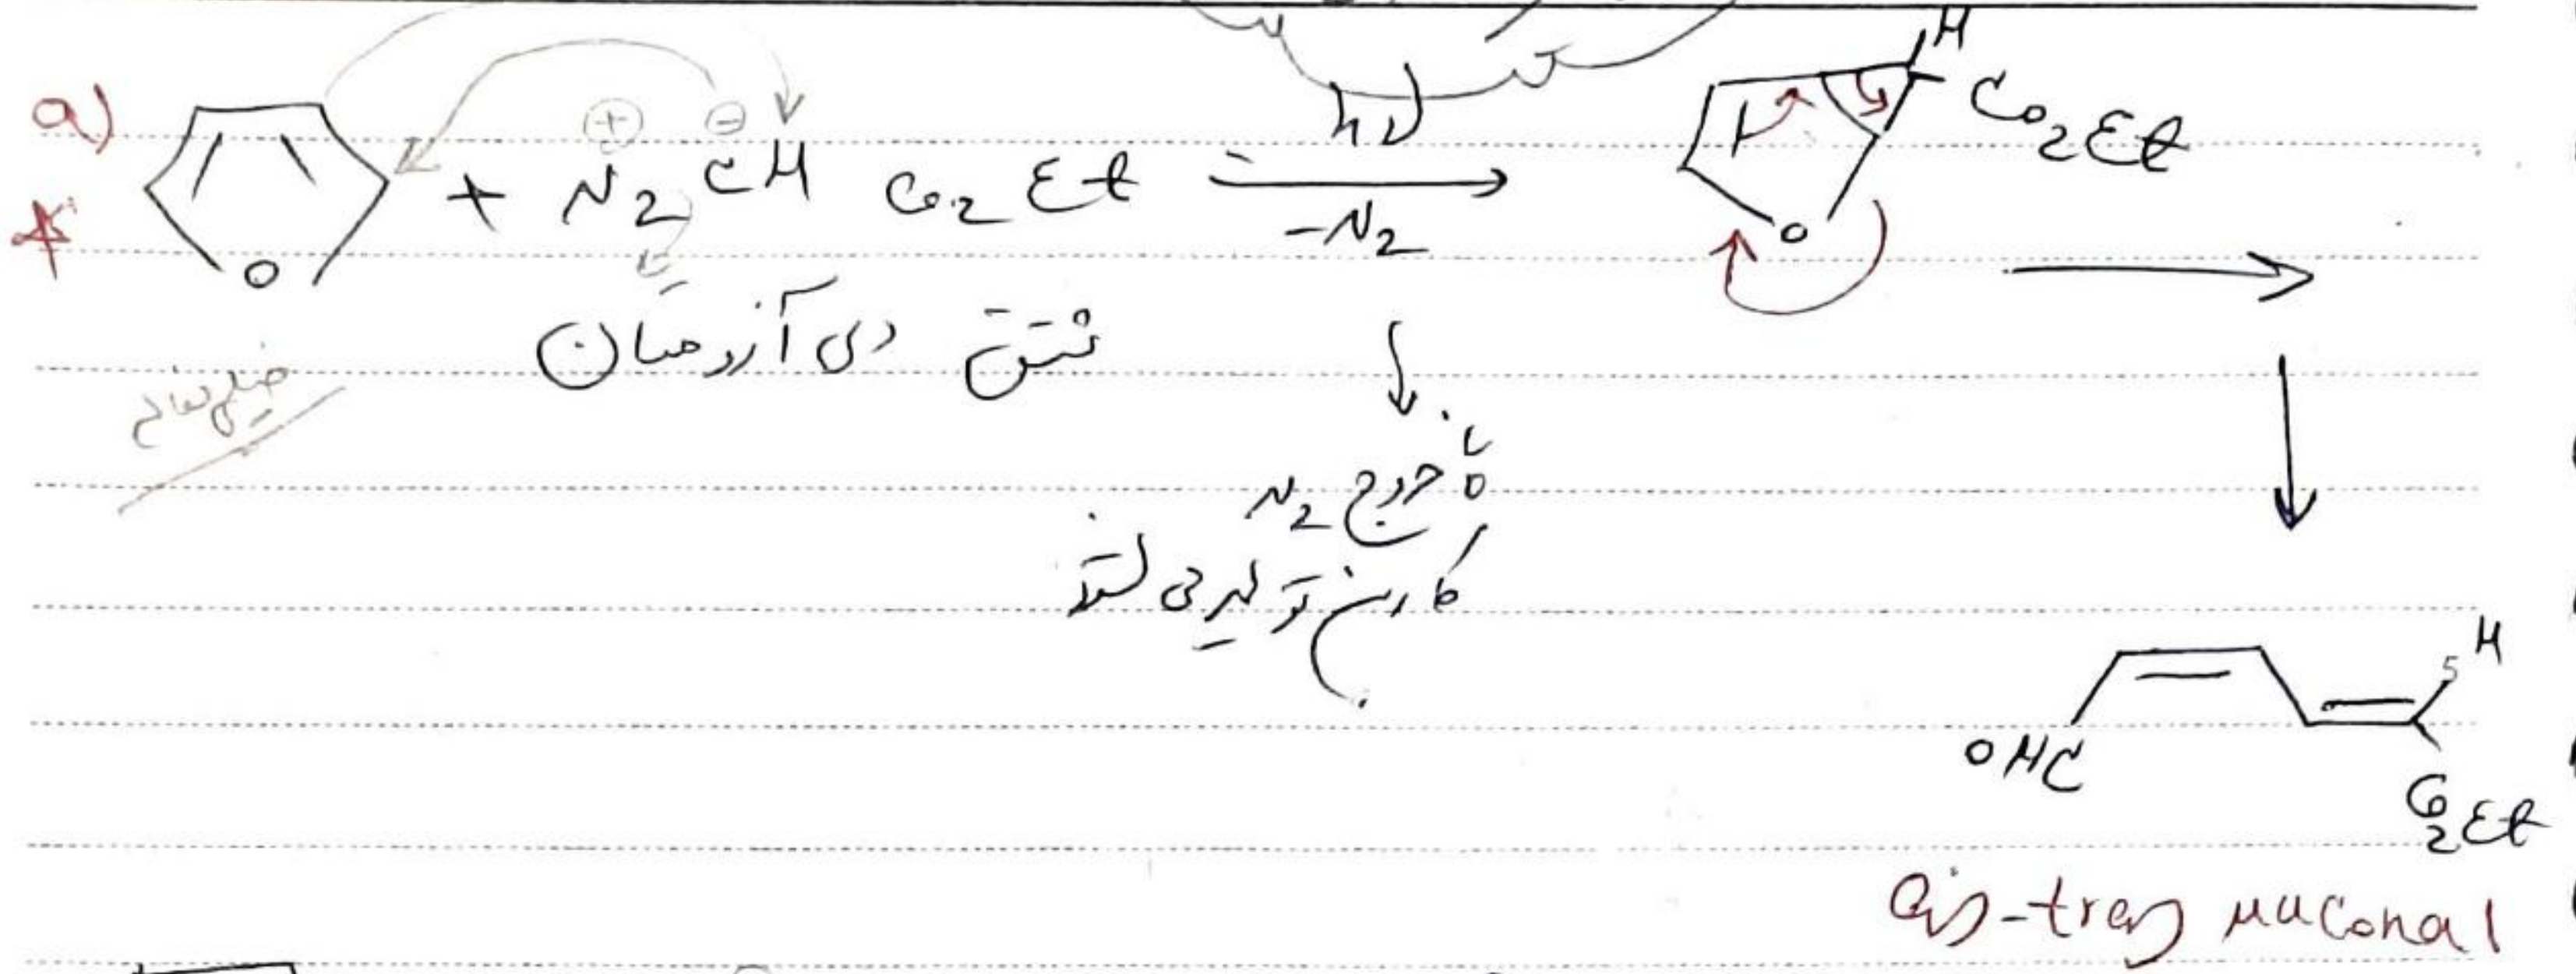 a)
O + N2 CH CO2Et
⊕ ⊖
hν
-N2
H
CO2Et
O
مشتق دی آزومتان
خیلی مهم
با خروج N2
کاربن تولید می شود
H
OHC
CO2Et
Cis-trans muconal